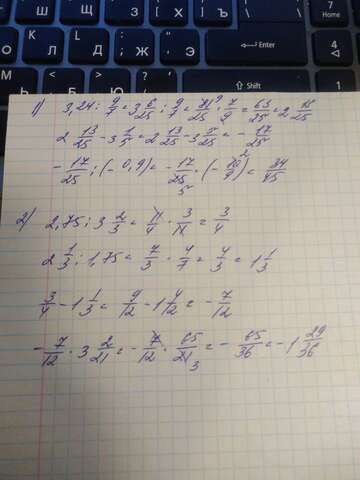 7
Home
Э
Ж
Д
Л
О
Enter
4
Б
Ь
Shift
1
1) 3,24 : 9/7 = 3 6/25 : 9/7 = 81/25 · 7/9 = 63/25 = 2 13/25
2 13/25 - 3 1/5 = 2 13/25 - 3 5/25 = - 17/25
- 17/25 : (- 0,9) = - 17/25 · (- 10/9) = 34/45
2) 2,75 : 3 2/3 = 11/4 · 3/11 = 3/4
2 1/3 : 1,75 = 7/3 · 4/7 = 4/3 = 1 1/3
3/4 - 1 1/3 = 9/12 - 1 4/12 = - 7/12
- 7/12 · 3 2/21 = - 7/12 · 65/21 = - 65/36 = - 1 29/36